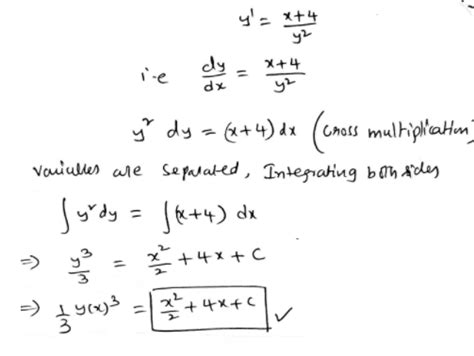 y' = (x+4)/y²
i.e dy/dx = (x+4)/y²
y² dy = (x+4) dx (cross multiplication)
variables are separated, Integrating both sides
∫ y² dy = ∫ (x+4) dx
⇒ y³/3 = x²/2 + 4x + C
⇒ 1/3 y(x)³ = x²/2 + 4x + C ✓